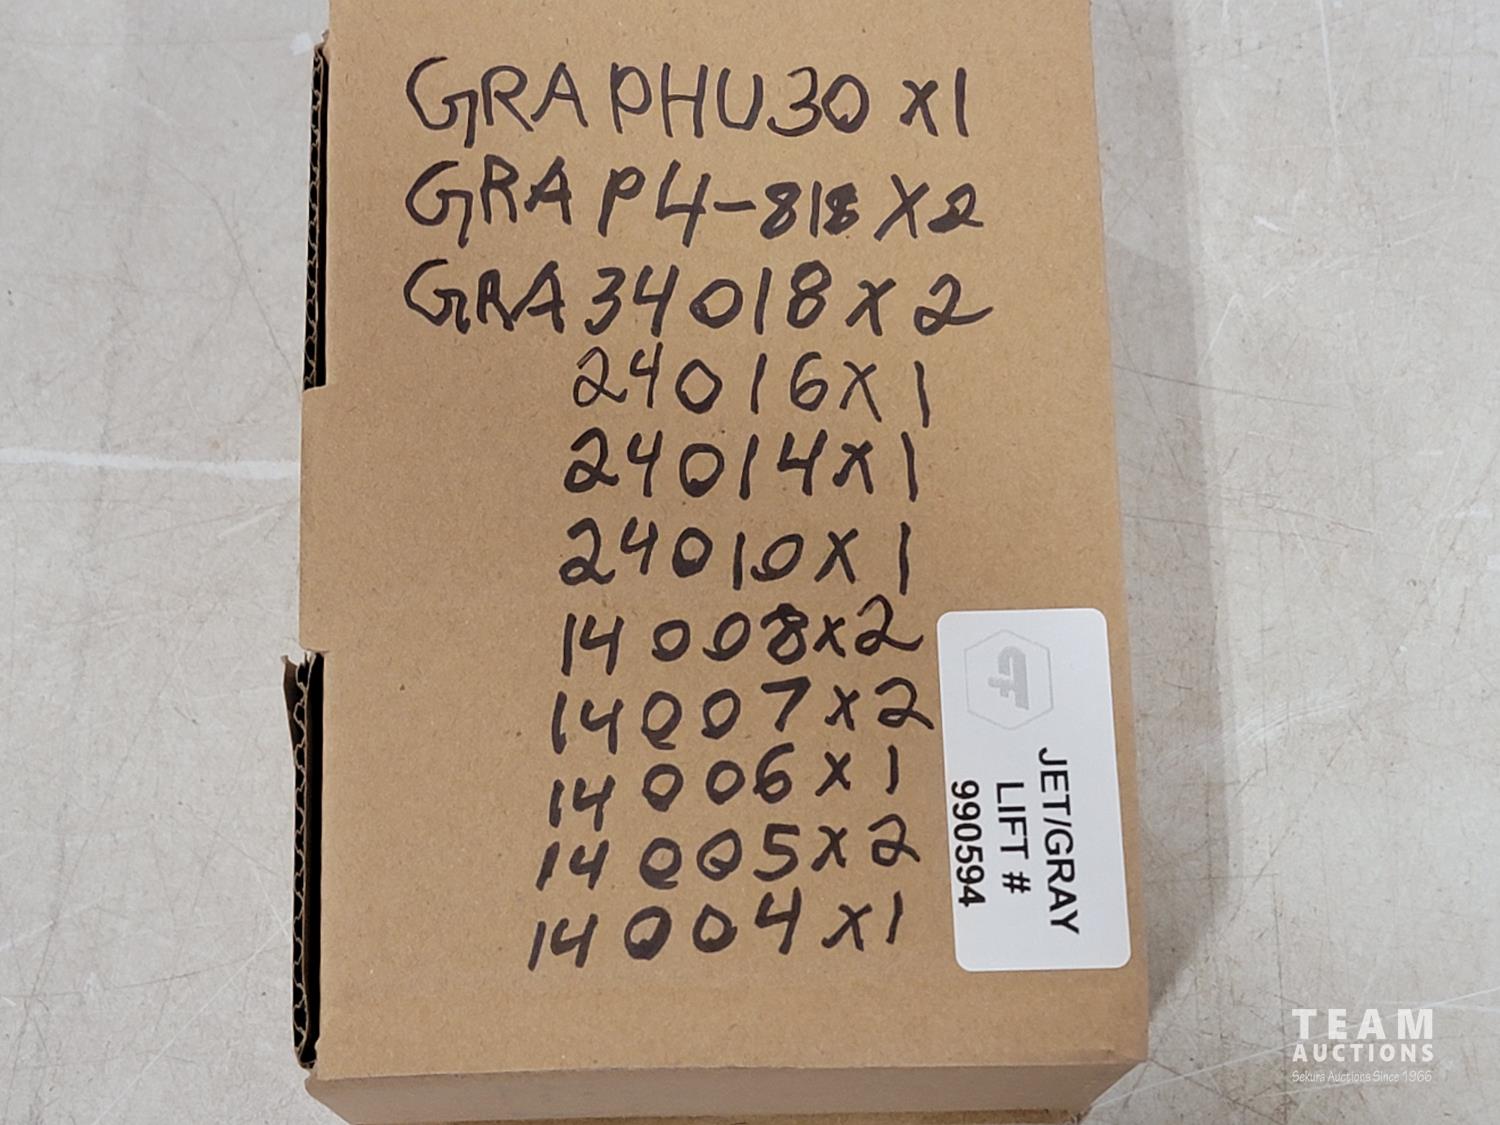 GRAPHU30 X1
GRAP4-818 X2
GRA34018 X 2
24016 X 1
24014 X 1
24010 X 1
14008 X 2
14007 X 2
14006 X 1
14005 X 2
14004 X 1
JET/GRAY
LIFT #
990594
TEAM
AUCTIONS
Sekura Auctions Since 1966